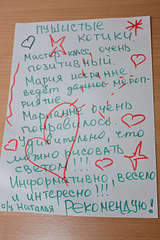 ПУШИСТЫЕ
КОТИКИ!
Мастер-класс очень
позитивный.
Мария искренне
ведёт данное мероп-
риятие.
Марианне очень
понравилось.
Удивительно, что
можно рисовать
светом!!!
Информативно, весело
и интересно!!!
Наталья Рекомендую!